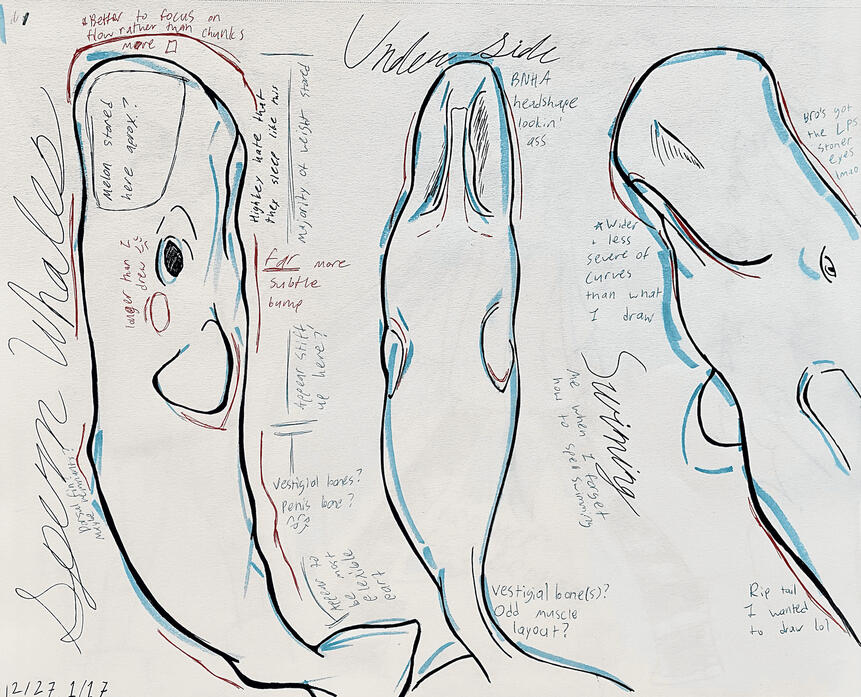 *Better to focus on
flow rather than chunks
more
Sperm Whales
Melon stored
here aprox?
longer than I
drew
Dorsal fin
maybe remnants?
12/27 1/17
Highkey hate that
they sleep like this
Majority of weight stored
Far more
subtle
bump
Appear stiff
up here?
Vestigial bones?
Penis bone?
Appear to
be most
flexible
part
Under side
BNHA
headshape
lookin'
ass
Vestigial bone(s)?
Odd muscle
layout?
Bro's got
the LPS
stoner
eyes
lmao
*Wider
+ less
severe of
curves
than what
I draw
Swiming
Me when I forget
how to spell swimming
Rip tail
I wanted
to draw lol